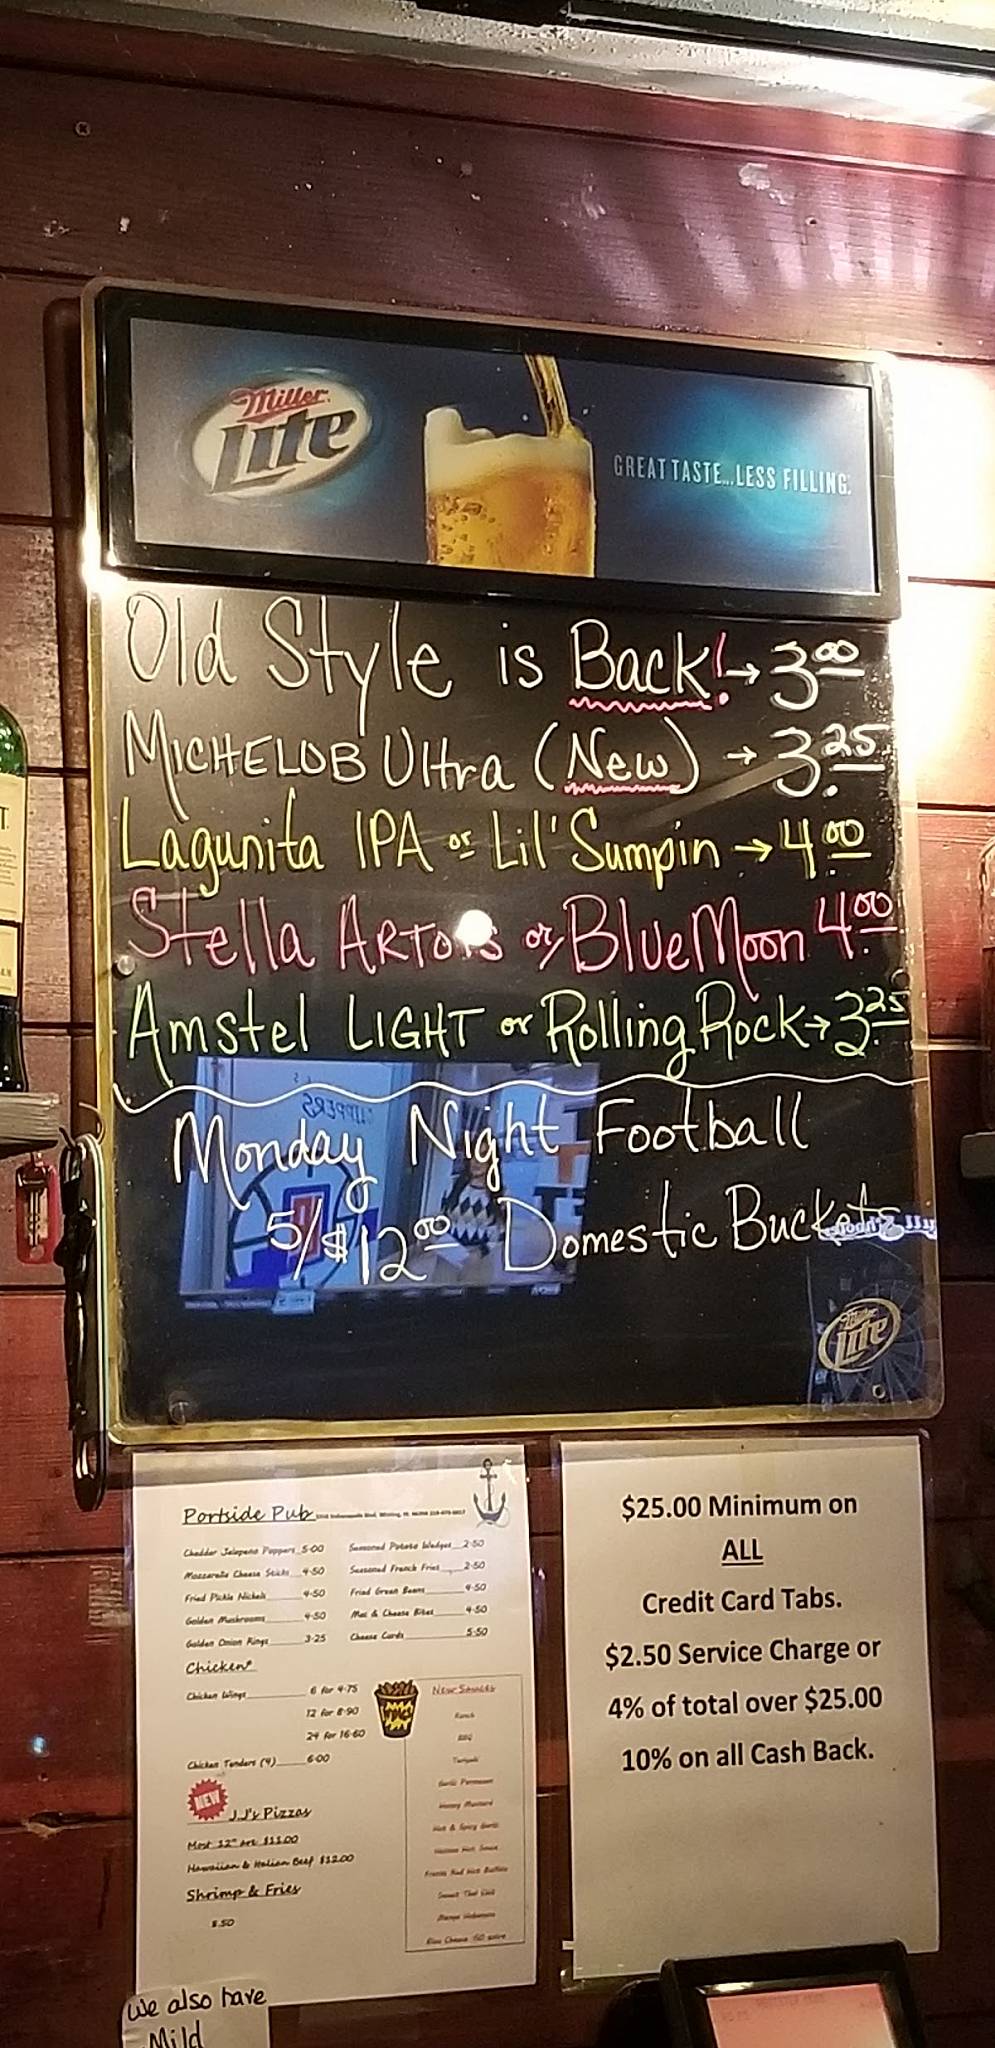 Miller
Lite
GREAT TASTE...LESS FILLING.
Old Style is Back! → 3.00
MICHELOB Ultra (New) → 3.25
Lagunita IPA or Lil' Sumpin → 4.00
Stella ARTOIS or BlueMoon 4.00
Amstel LIGHT or Rolling Rock → 3.25
Monday Night Football
5/$12.00 Domestic Buckets
Miller
Lite
Portside Pub
Cheddar Jalapeno Poppers 5.00
Mozzarella Cheese Sticks 4.50
Fried Pickle Nickels 4.50
Golden Mushrooms 4.50
Golden Onion Rings 3.25
Seasoned Potato Wedges 2.50
Seasoned French Fries 2.50
Fried Green Beans 4.50
Mac & Cheese Bites 4.50
Cheese Curds 5.50
Chicken
Chicken Wings 6 for 4.75
12 for 8.90
24 for 16.60
Chicken Tenders (4) 6.00
WINGS
NEW
J.J's Pizzas
Most 12" are $11.00
Hawaiian & Italian Beef $12.00
Shrimp & Fries
8.50
Ranch
BBQ
Teriyaki
Garlic Parmesan
Honey Mustard
Hot & Spicy Garlic
$25.00 Minimum on
ALL
Credit Card Tabs.
$2.50 Service Charge or
4% of total over $25.00
10% on all Cash Back.
We also have
Mild